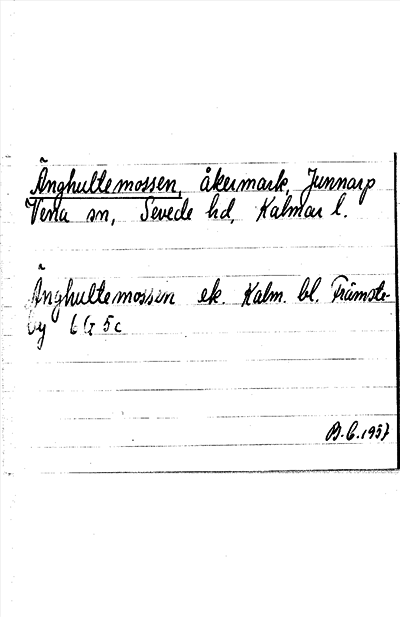 Änghultemossen, åkermark, Junnarp
Vena sn, Sevede hd, Kalmar l.
Änghultemossen ek. Kalm. bl. Främste-
by 6 G 5 c
B.G. 1957